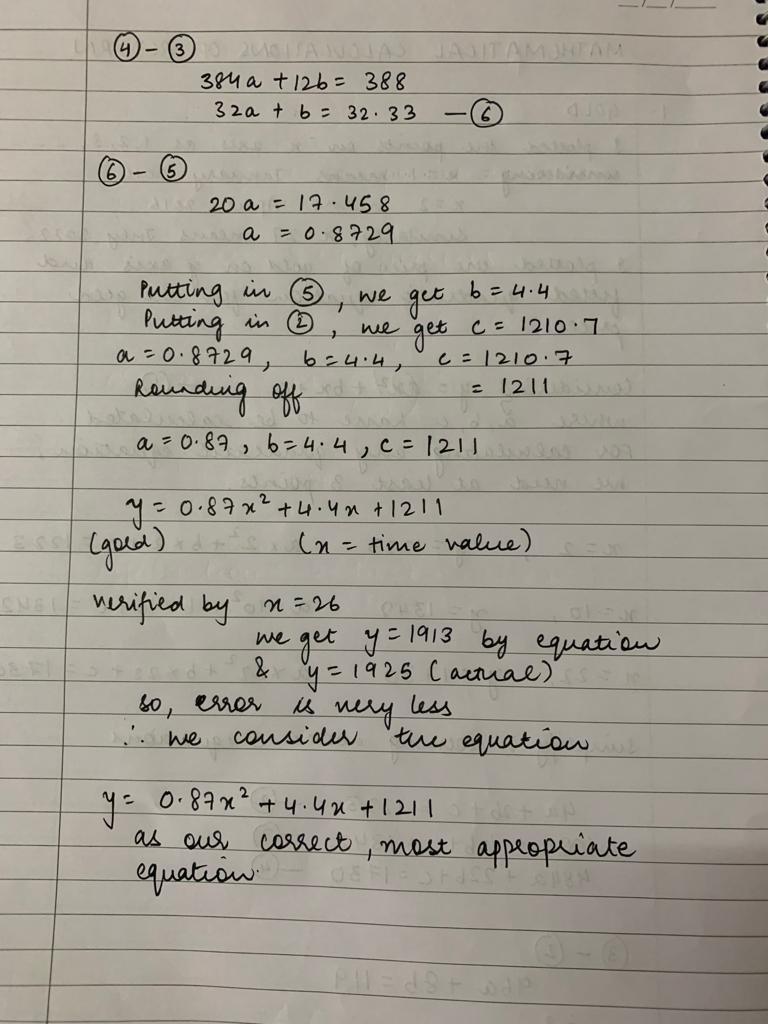 ④ - ③
384a + 12b = 388
32a + b = 32.33 — ⑥
⑥ - ⑤
20a = 17.458
a = 0.8729
Putting in ⑤, we get b = 4.4
Putting in ②, we get c = 1210.7
a = 0.8729, b = 4.4, c = 1210.7
Rounding off = 1211
a = 0.87, b = 4.4, c = 1211
y = 0.87x² + 4.4x + 1211
(gold) (x = time value)
verified by x = 26
we get y = 1913 by equation
& y = 1925 (actual)
so, error is very less
∴ we consider the equation
y = 0.87x² + 4.4x + 1211
as our correct, most appropriate
equation.